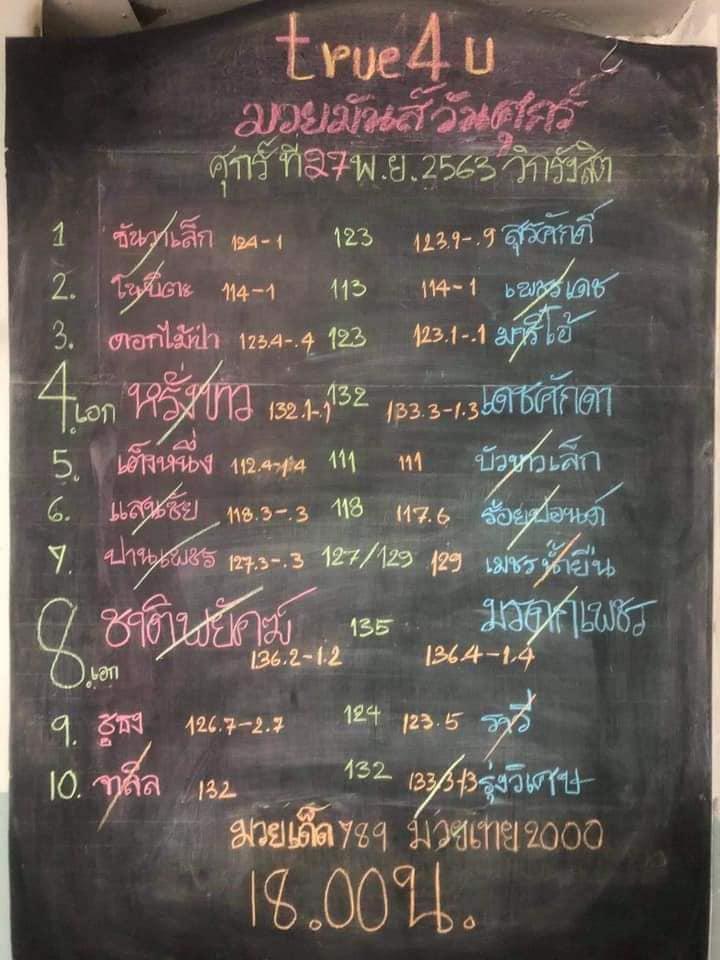 true4u
มวยมันส์วันศุกร์
ศุกร์ ที่ 27 พ.ย. 2563 วิกรังสิต
1 ธันวาเล็ก 124-1 123 123.9-.9 สุรศักดิ์
2. โนบิตะ 114-1 113 114-1 เพชรเดช
3. ดอกไม้ป่า 123.4-.4 123 123.1-.1 มารีโอ้
4.เอก หรั่งขาว 132.1-.1 132 133.3-1.3 เดชศักดา
5. เต็งหนึ่ง 112.4-1.4 111 111 บัวขาวเล็ก
6. แสนชัย 118.3-.3 118 117.6 ร้อยปอนด์
7. ปานเพชร 127.3-.3 127/129 129 เมชรน้ำยืน
8.เอก ชาติพยัคฆ์ 135 มรดกเพชร
136.2-1.2 136.4-1.4
9. ชูธง 126.7-2.7 124 123.5 ราวี
10. 132 132 รุ่งวิเศษ
มวยเด็ด789 มวยไทย2000
18.00น.